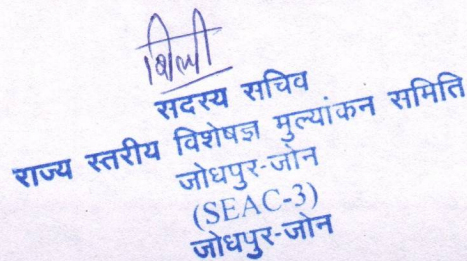 सदस्य सचिव
राज्य स्तरीय विशेषज्ञ मुल्यांकन समिति
जोधपुर-जोन
(SEAC-3)
जोधपुर-जोन